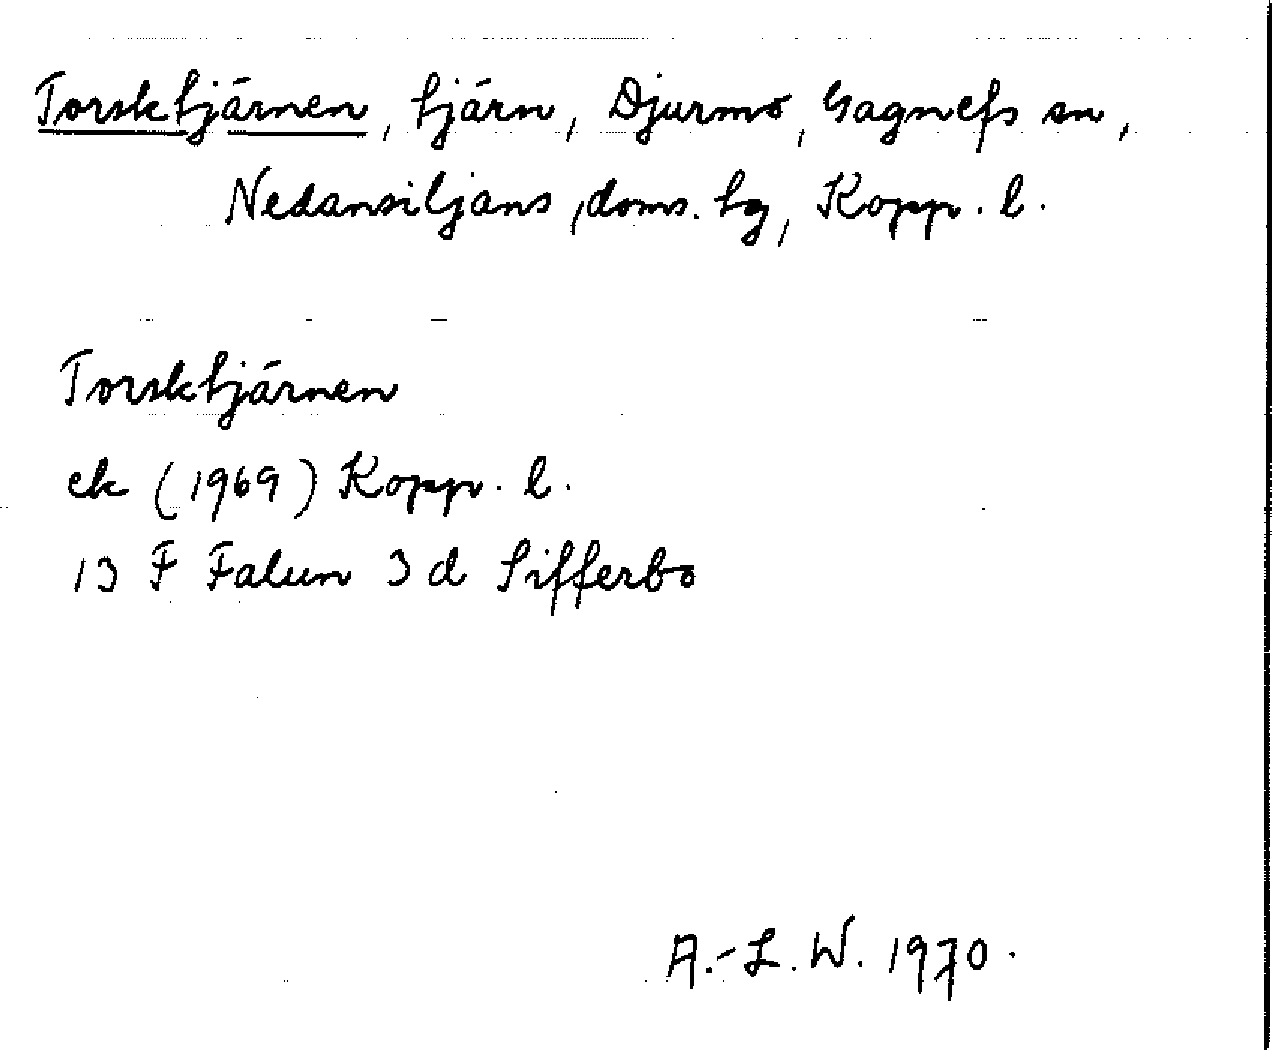 Torsktjärnen, tjärn, Djurmo, Gagnefs sn,
Nedansiljans, doms. tg, Kopp. l.
Torsktjärnen
ek (1969) Kopp. l.
13 F Falun 3 d Sifferbo
A.-L. W. 1970.